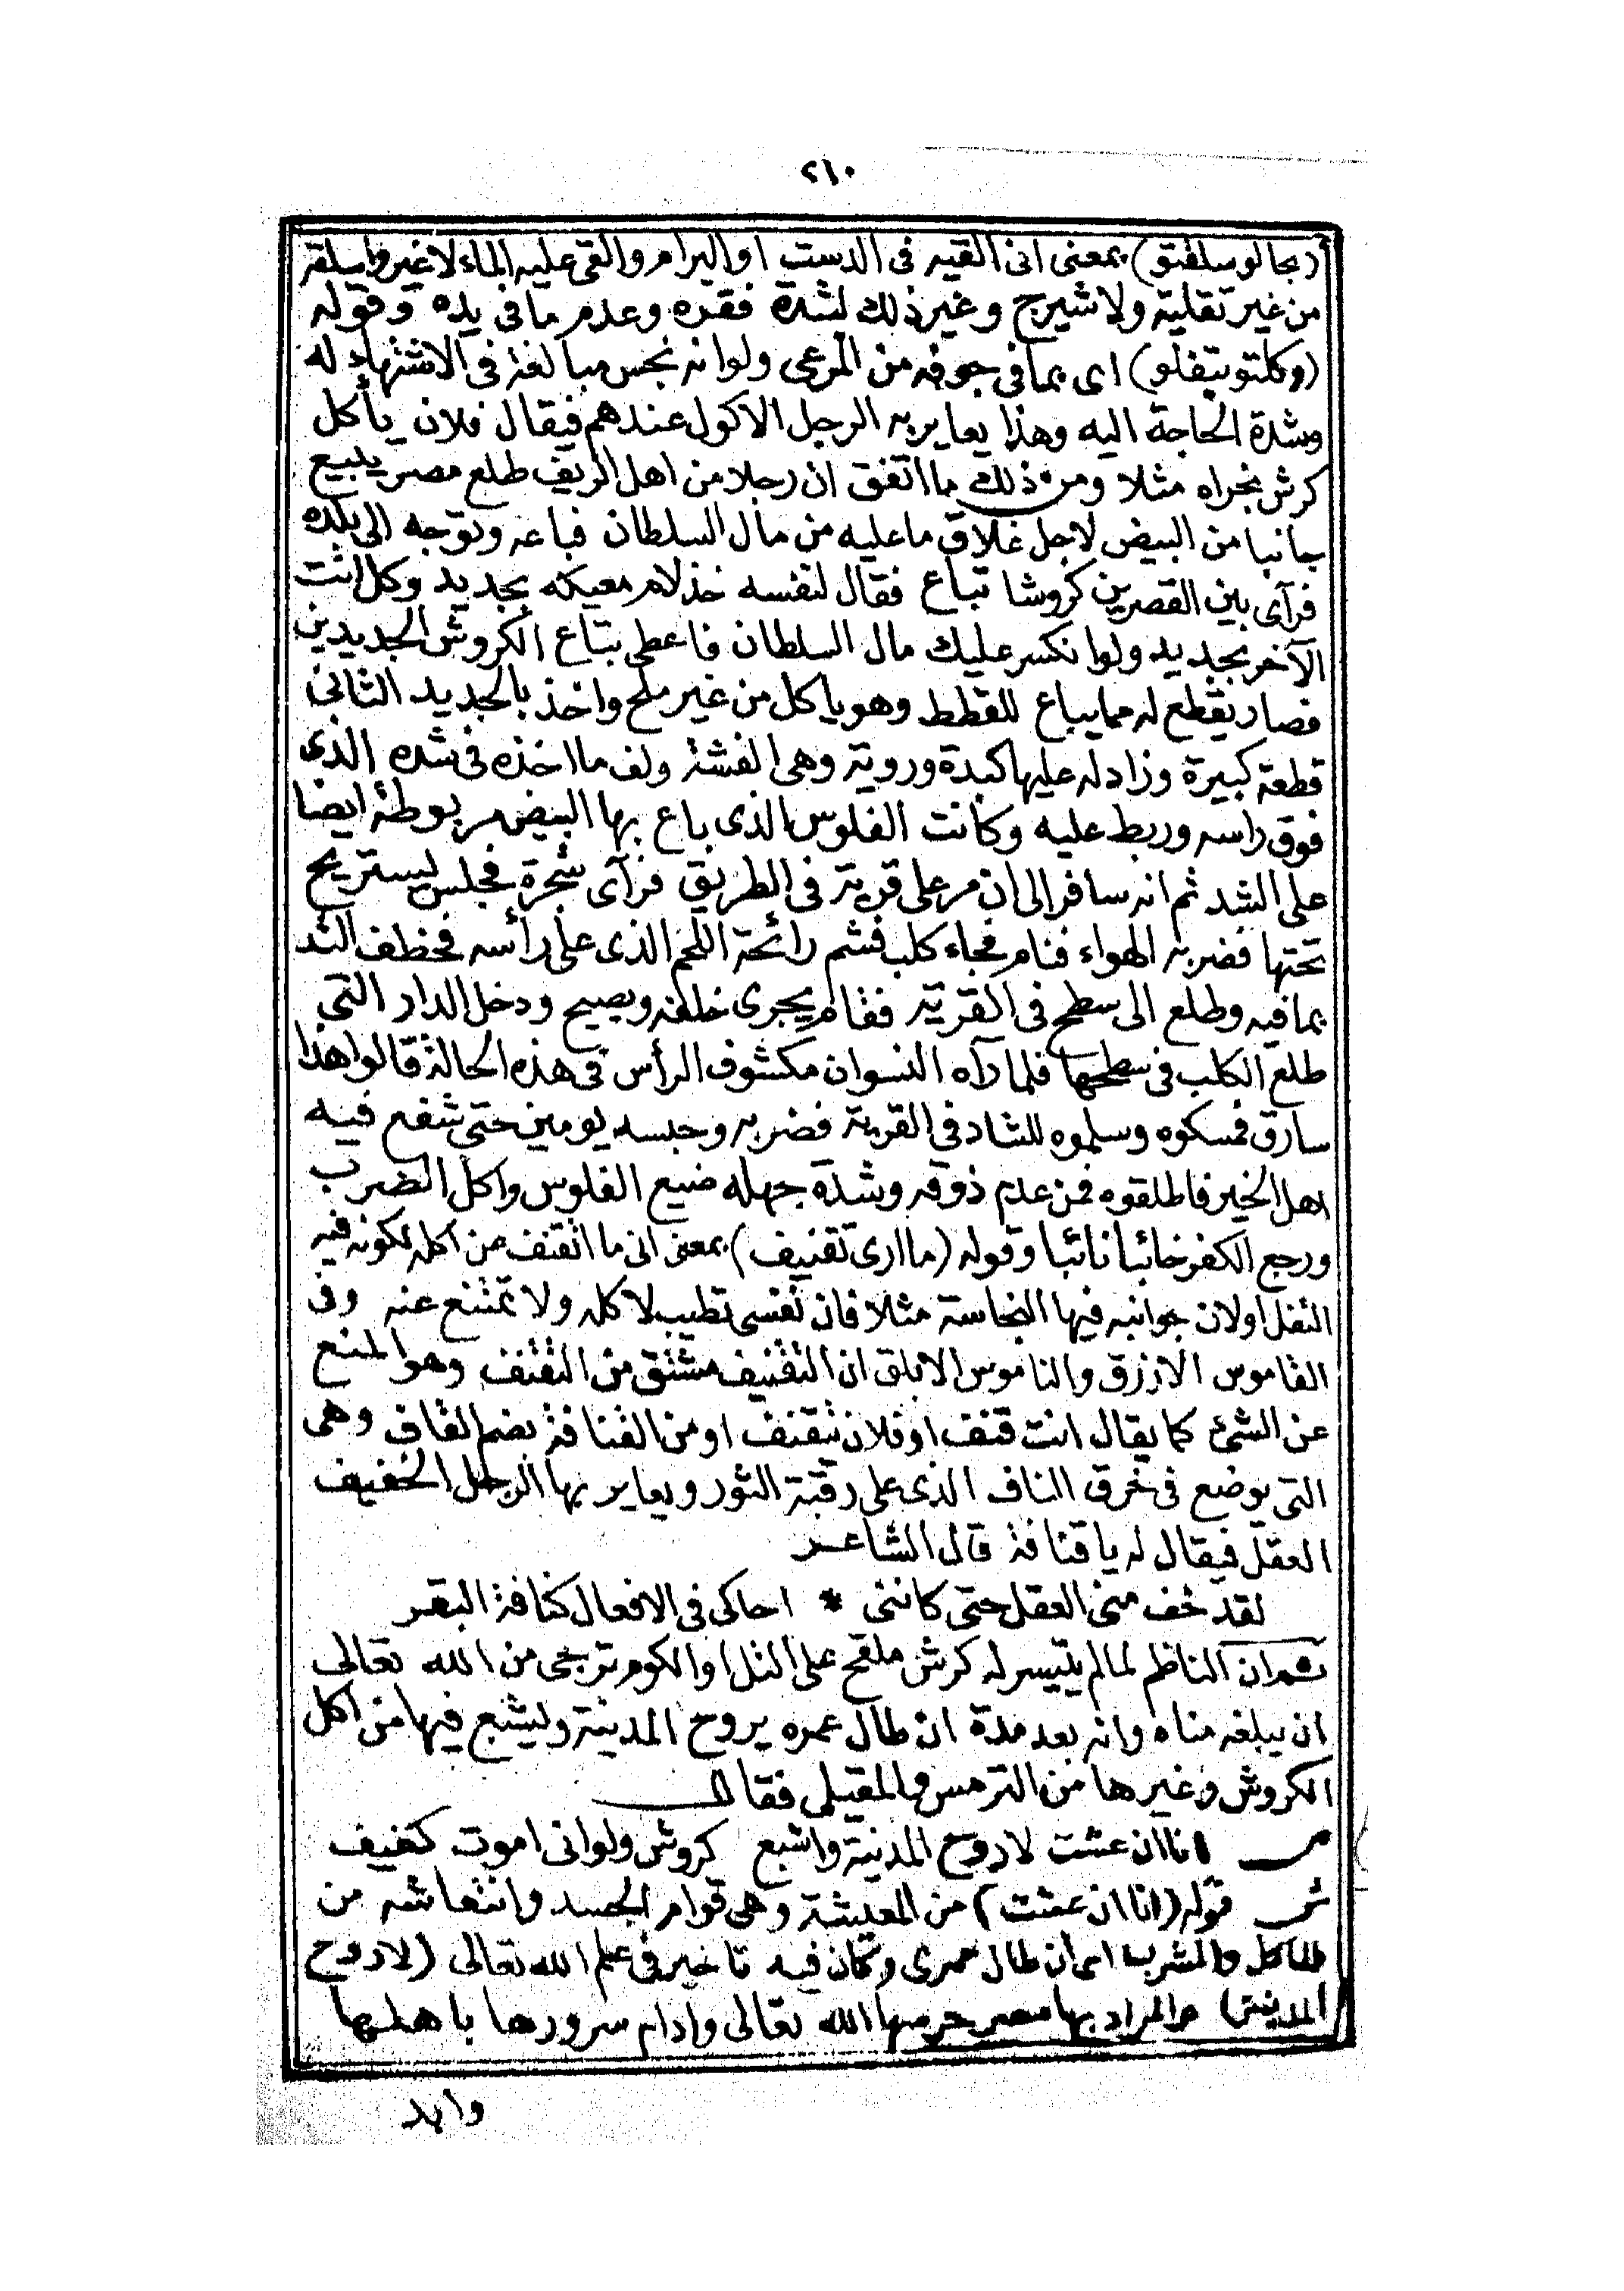 ٢١٠
(بحالو سلقتو) بمعنى انى القيه فى الدست او البرام والقى عليه الماء لا غير واسلقه
من غير تقلية ولا شيرج وغير ذلك لشدة فقره وعدم ما فى يده وقوله
(وكلتو بتفلو) اى بما فى جوفه من المرعى ولو انه نجس مبالغة فى الاشتهاء له
وشدة الحاجة اليه وهذا يعاير به الرجل الاكول عندهم فيقال فلان يأكل
كرش بخراه مثلا ومن ذلك ما اتفق ان رجلا من اهل الريف طلع مصر يبيع
جانبا من البيض لاجل غلاق ما عليه من مال السلطان فباعه وتوجه الى بلده
فرآى بين القصرين كروشا تباع فقال لنفسه خذ لام معيكه بجديد وكل انت
الآخر بجديد ولو انكسر عليك مال السلطان فاعطى بتاع الكروش الجديدين
فصار يقطع له مما يباع للقطط وهو ياكل من غير ملح واخذ بالجديد الثانى
قطعة كبيرة وزاد له عليها كبدة وروية وهى الفشة ولف ما اخذه فى شده الذى
فوق راسه وربط عليه وكانت الفلوس الذى باع بها البيض مربوطة ايضا
على الشد ثم انه سافر الى ان مر على قرية فى الطريق فرآى شجرة فجلس ليستريح
تحتها فضربه الهواء فنام فجاء كلب فشم رائحة اللحم الذى على رأسه فخطف الشد
بما فيه وطلع الى سطح فى القرية فقام يجرى خلفه ويصيح ودخل الدار التى
طلع الكلب فى سطحها فلما رآه النسوان مكشوف الرأس فى هذه الحالة قالوا هذا
سارق فمسكوه وسلموه للشاد فى القرية فضربه وحبسه يومين حتى شفع فيه
اهل الخير فاطلقوه فمن عدم ذوقه وشدة جهله ضيع الفلوس واكل الضرب
ورجع الكفر خائبا نائبا وقوله (ما ارى تقنيف) بمعنى انى ما اتقنف من اكله لكونه فيه
التفل او لان جوانبه فيها النجاسة مثلا فان نفسى تطيب لاكله ولا تمتنع عنه وفى
القاموس الازرق والناموس الابلق ان التقنيف مشتق من التقنف وهو المنع
عن الشئ كما يقال انت قنف او فلان تقنف او من القنافة بضم القاف وهى
التى يوضع فى خرق الناف الذى على رقبة الثور ويعاير بها الرجل الخفيف
العقل فيقال له يا قنافة قال الشاعر
لقد خف منى العقل حتى كاننى * احاكى فى الافعال كنافة البقر
ثم ان الناظم لما لم يتيسر له كرش ملقح على التل او الكوم ترجى من الله تعالى
ان يبلغه مناه وانه بعد مدة ان طال عمره يروح المدينة ويشبع فيها من اكل
الكروش وغيرها من الترمس والمقيلى فقال
ص انا ان عشت لاروح المدينة واشبع كروش ولو انى اموت كفيف
ش قوله (انا ان عشت) من المعيشة وهى قوام الجسد وانتعاشه من
الماكل والمشرب اى ان طال عمرى وكان فيه تاخير فى علم الله تعالى (لاروح
المدينة) والمراد بها مصر حرسها الله تعالى وادام سرورها باهلها
وابد